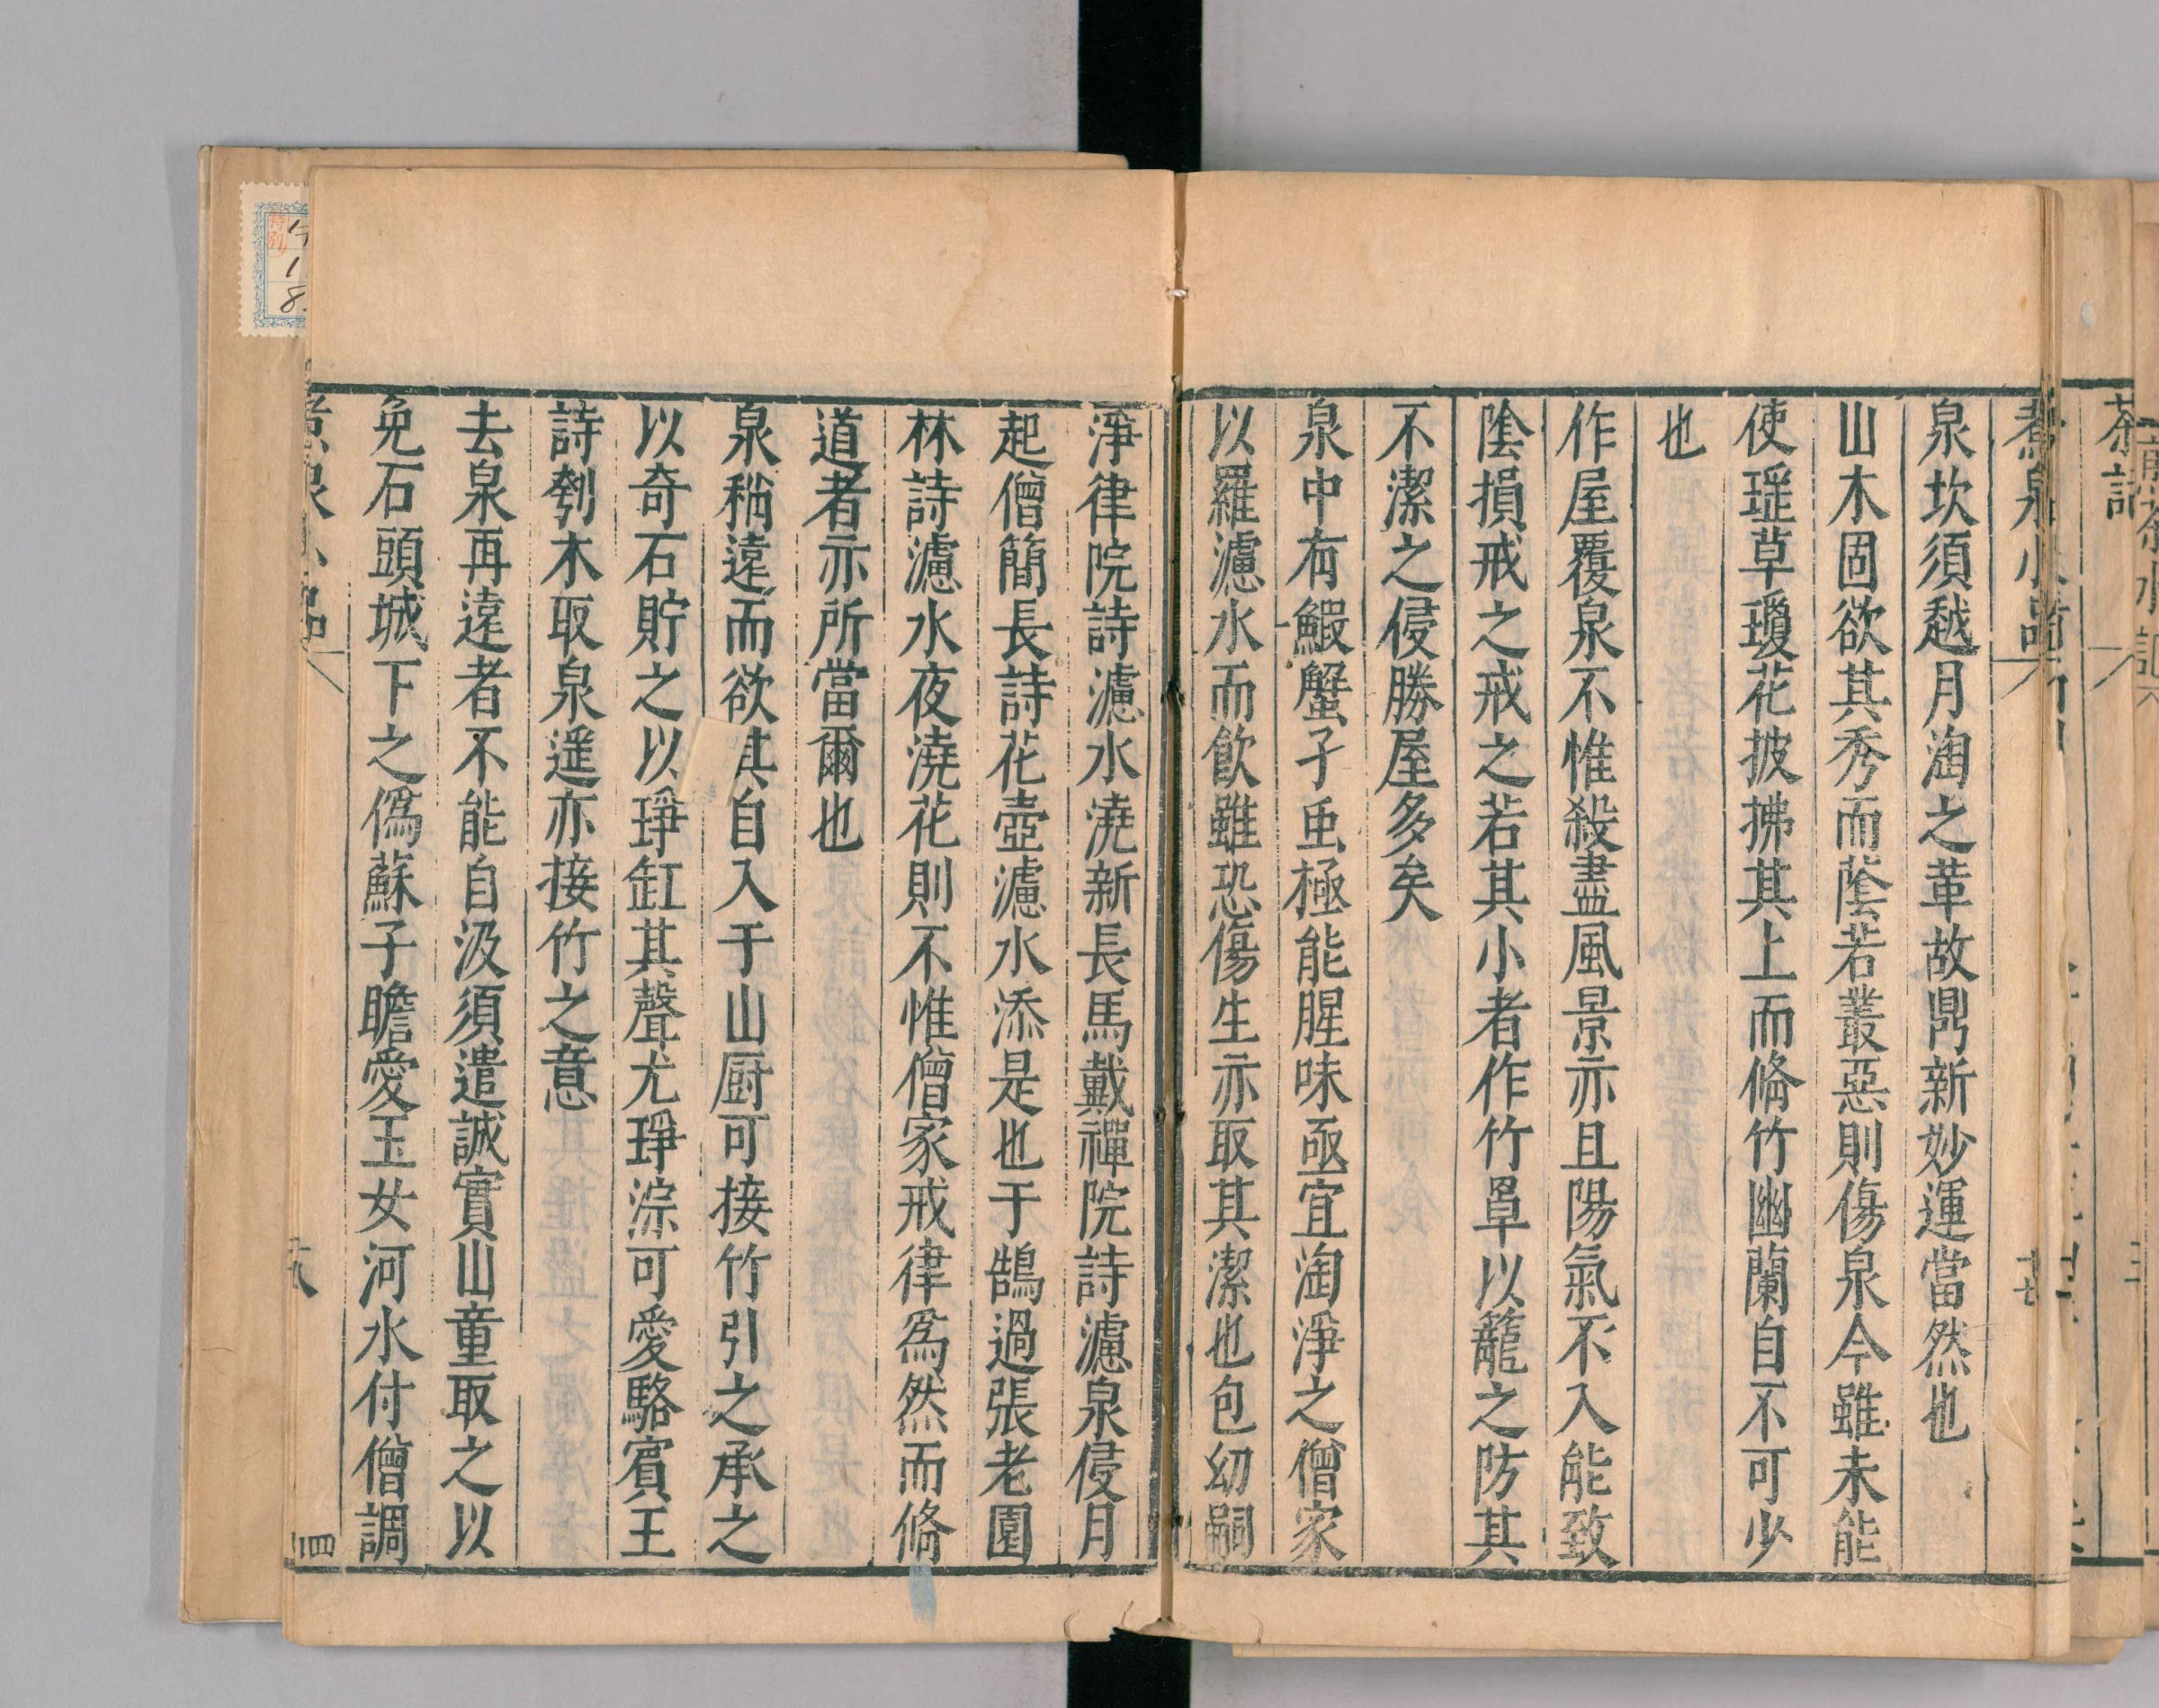 茶記
煮泉小品
十七
泉坎須越月淘之革故鼎新妙運當然也
山木固欲其秀而蔭若叢惡則傷泉今雖未能
使瑶草瓊花披拂其上而脩竹幽蘭自不可少
也
作屋覆泉不惟殺盡風景亦且陽氣不入能致
陰損戒之戒之若其小者作竹罩以籠之防其
不潔之侵勝屋多矣
泉中有鰕蟹孑䖝極能腥味亟宜淘淨之僧家
以羅濾水而飲雖恐傷生亦取其潔也包幼嗣
淨律院詩濾水澆新長馬戴禪院詩濾泉侵月
起僧簡長詩花壺濾水添是也于鵠過張老園
林詩濾水夜澆花則不惟僧家戒律爲然而脩
道者亦所當爾也
泉稍遠而欲其自入于山厨可接竹引之承之
以奇石貯之以琤缸其聲尤琤淙可愛駱賓王
詩刳木取泉遥亦接竹之意
去泉再遠者不能自汲須遣誠實山童取之以
免石頭城下之僞蘇子瞻愛玉女河水付僧調